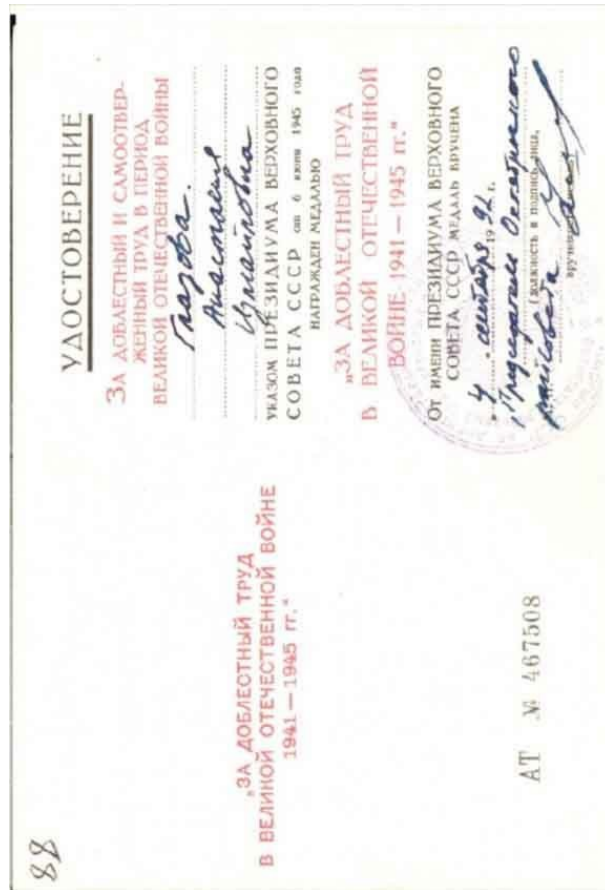 88
„ЗА ДОБЛЕСТНЫЙ ТРУД
В ВЕЛИКОЙ ОТЕЧЕСТВЕННОЙ ВОЙНЕ
1941—1945 гг.“
АТ № 467508
УДОСТОВЕРЕНИЕ
ЗА ДОБЛЕСТНЫЙ И САМООТВЕР-
ЖЕННЫЙ ТРУД В ПЕРИОД
ВЕЛИКОЙ ОТЕЧЕСТВЕННОЙ ВОЙНЫ
Глазова.
Анастасия
Измайловна
УКАЗОМ ПРЕЗИДИУМА ВЕРХОВНОГО
СОВЕТА СССР от 6 июня 1945 года
НАГРАЖДЕН МЕДАЛЬЮ
„ЗА ДОБЛЕСТНЫЙ ТРУД
В ВЕЛИКОЙ ОТЕЧЕСТВЕННОЙ
ВОЙНЕ 1941—1945 гг.“
От ИМЕНИ ПРЕЗИДИУМА ВЕРХОВНОГО
СОВЕТА СССР МЕДАЛЬ ВРУЧЕНА
„4 сентября 1992 г.
Председатель Октябрьского
(должность и подпись лица,
райсовета
вручившего